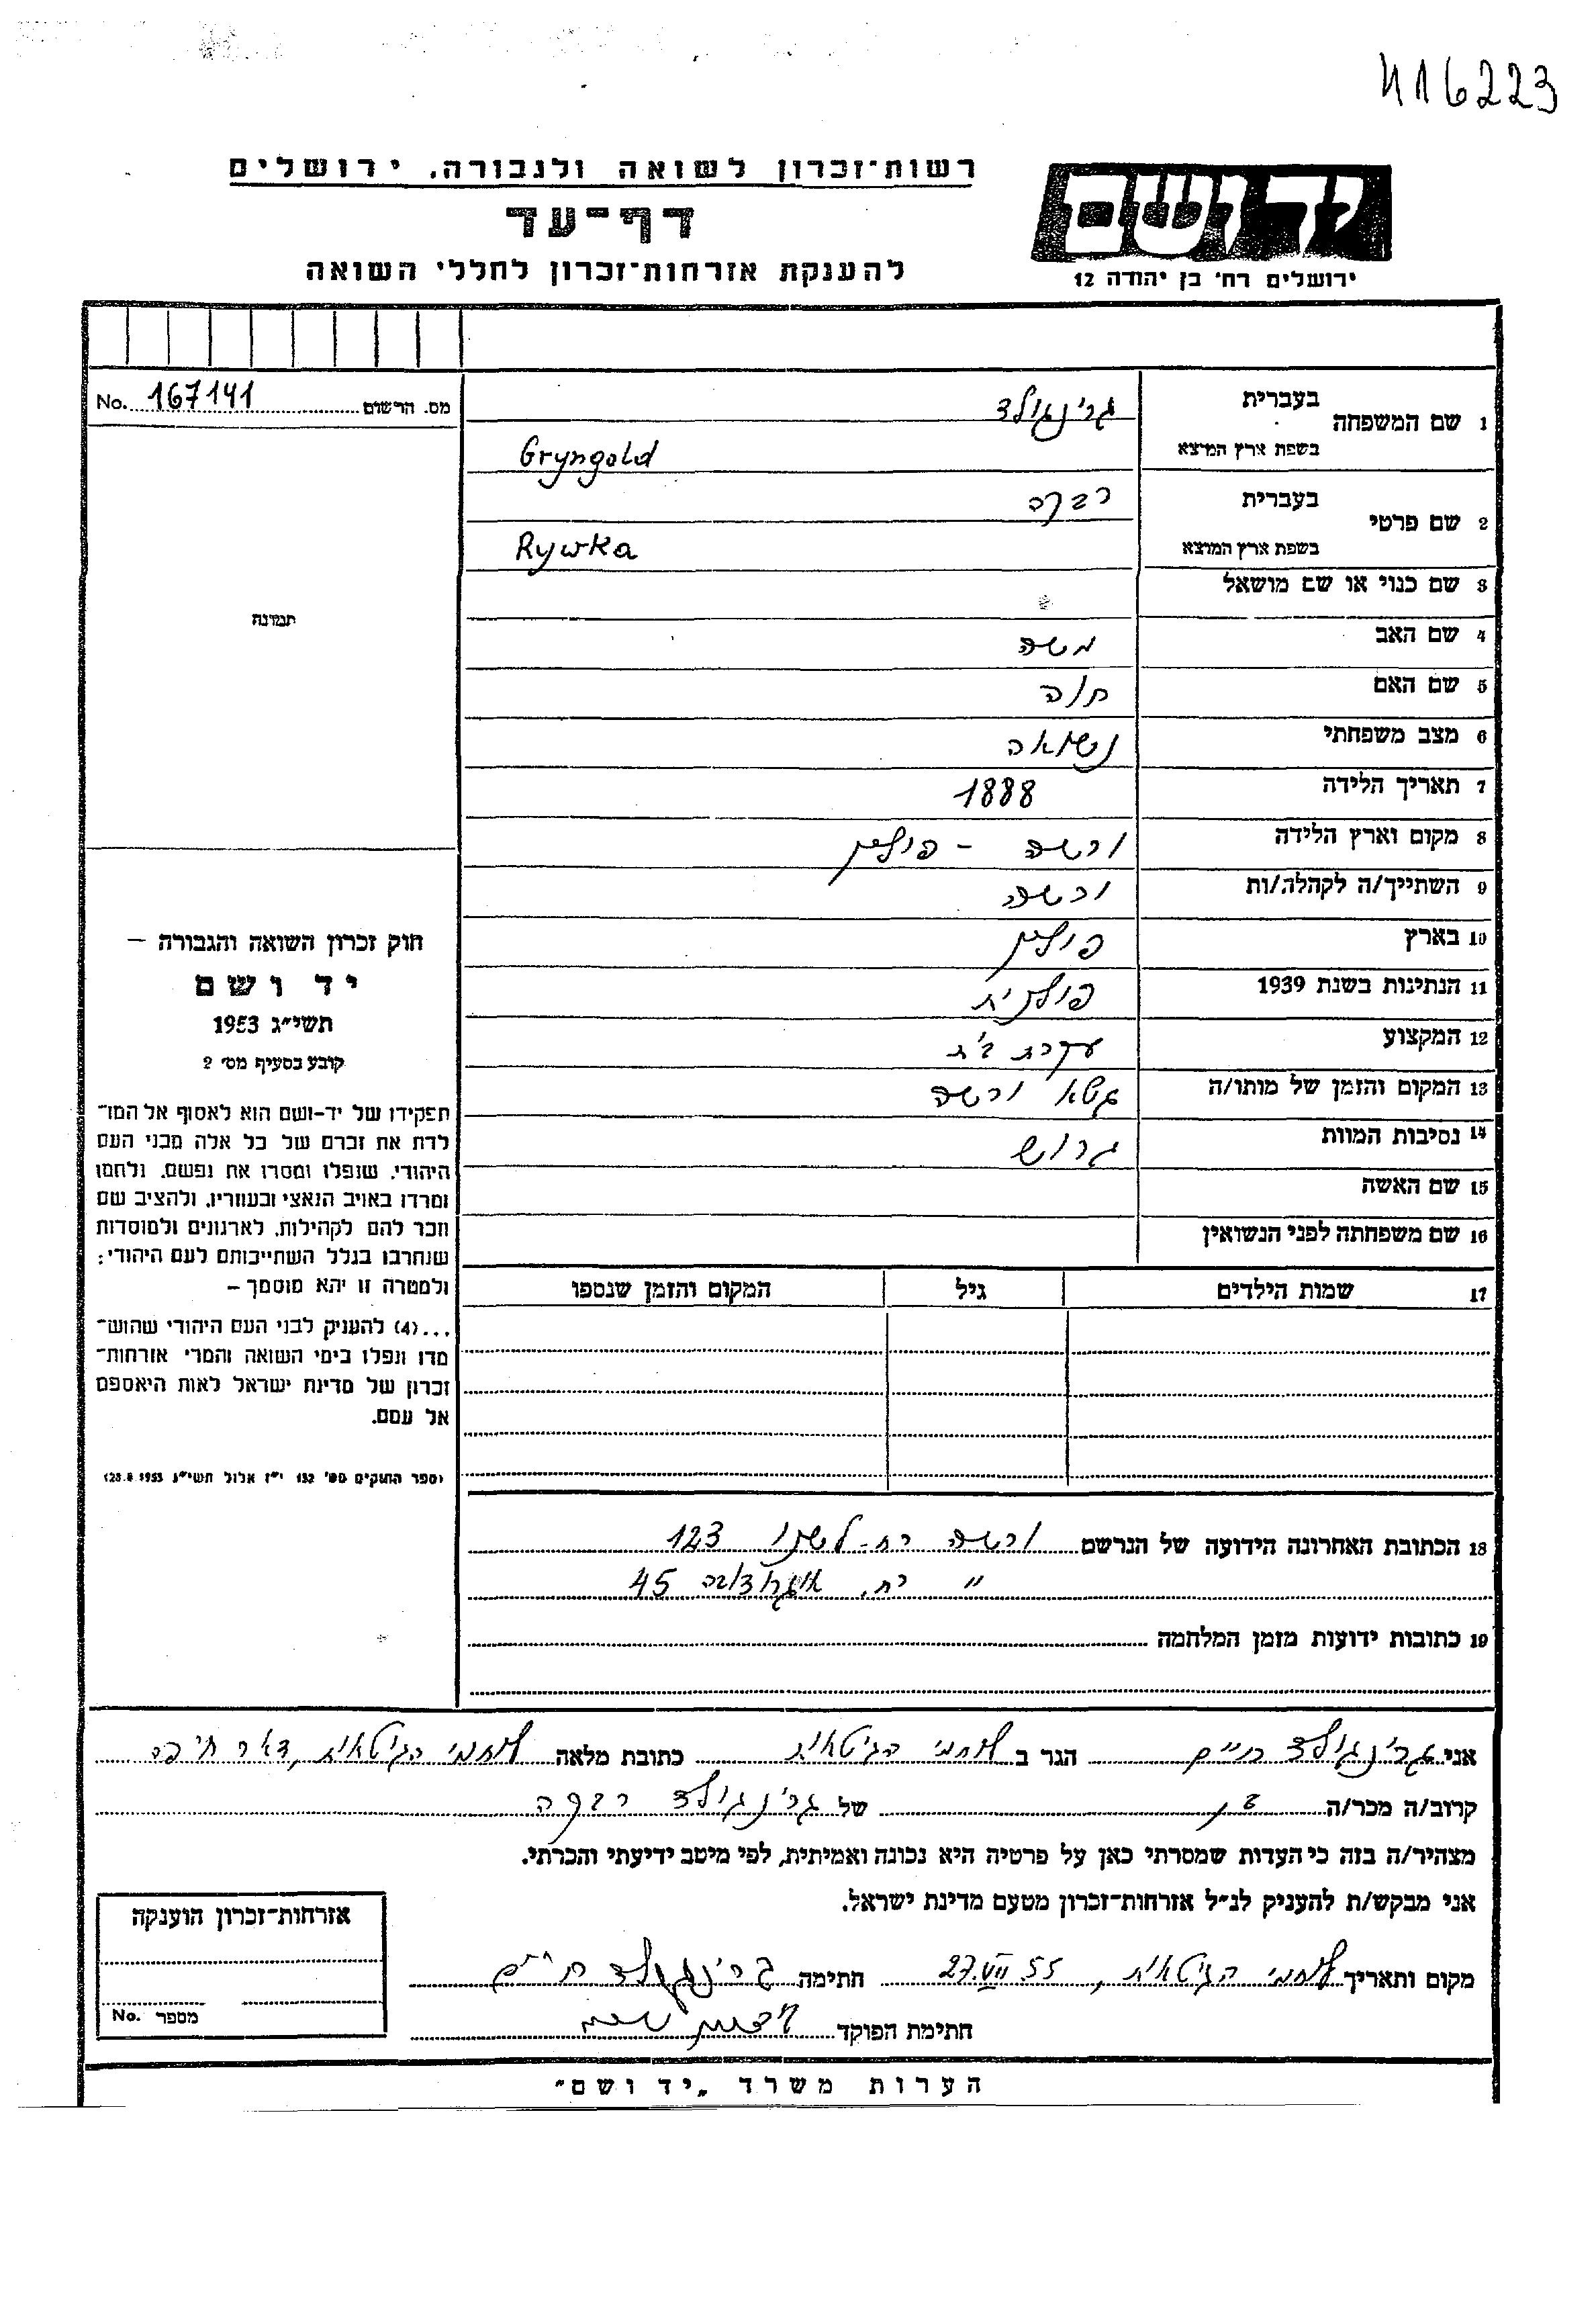 416223
רשות־זכרון לשואה ולגבורה, ירושלים
דף־עד
להענקת אזרחות־זכרון לחללי השואה
יד ושם
ירושלים רח' בן יהודה 12
מס. הרשום 167141 No.
1 שם המשפחה
בעברית גרינגולד
בשפת ארץ המוצא Gryngold
2 שם פרטי
בעברית רבקה
בשפת ארץ המוצא Rywka
3 שם כנוי או שם מושאל
4 שם האב משה
5 שם האם חוה
6 מצב משפחתי נשואה
7 תאריך הלידה 1888
8 מקום וארץ הלידה ורשה - פולין
9 השתייך/ה לקהלה/ות ורשה
10 בארץ פולין
11 הנתינות בשנת 1939 פולנית
12 המקצוע עקרת בית
13 המקום והזמן של מותו/ה גטא ורשה
14 נסיבות המוות גרוש
15 שם האשה
16 שם משפחתה לפני הנשואין
17 שמות הילדים גיל המקום והזמן שנספו
תמונה
חוק זכרון השואה והגבורה –
יד ושם
תשי״ג 1953
קובע בסעיף מס׳ 2
תפקידו של יד-ושם הוא לאסוף אל המו־
לדת את זכרם של כל אלה מבני העם
היהודי, שנפלו ומסרו את נפשם, נלחמו
ומרדו באויב הנאצי ובעוזריו, ולהציב שם
וזכר להם לקהילות, לארגונים ולמוסדות
שנחרבו בגלל השתייכותם לעם היהודי:
ולמטרה זו יהא מוסמך –
...(4) להעניק לבני העם היהודי שהוש־
מדו ונפלו בימי השואה והמרי אזרחות־
זכרון של מדינת ישראל לאות היאספם
אל עמם.
(ספר החוקים מס׳ 132 י״ז אלול תשי״ג 28.8.1953)
18 הכתובת האחרונה הידועה של הנרשם ורשה רח. לשנו 123
״ רח. 45
19 כתובות ידועות מזמן המלחמה
אני גרינגולד חיים הגר ב לוחמי הגיטאות כתובת מלאה לוחמי הגיטאות, דאר חיפה
קרוב/ה מכר/ה בן של גרינגולד רבקה
מצהיר/ה בזה כי העדות שמסרתי כאן על פרטיה היא נכונה ואמיתית, לפי מיטב ידיעתי והכרתי.
אני מבקש/ת להעניק לנ״ל אזרחות־זכרון מטעם מדינת ישראל.
מקום ותאריך לוחמי הגיטאות, 27.VII 55 חתימה גרינגולד חיים
חתימת הפוקד
אזרחות־זכרון הוענקה
מספר No.
הערות משרד „יד ושם״